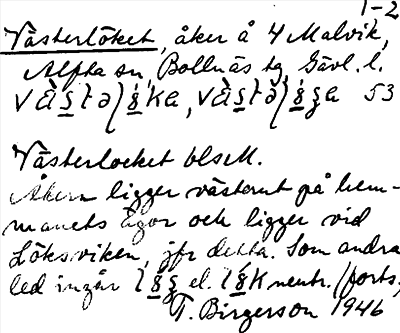 1-2
Västerlöket, åker å 4 Malvik,
Alfta sn, Bollnäs tg, Gävl. l.
53
Västerloeket blsM.
Åkern ligger västerut på hem-
manets ägor och ligger vid
Löksviken, jfr detta. Som andra
led ingår el. neutr. (forts.
T. Birgerson 1946